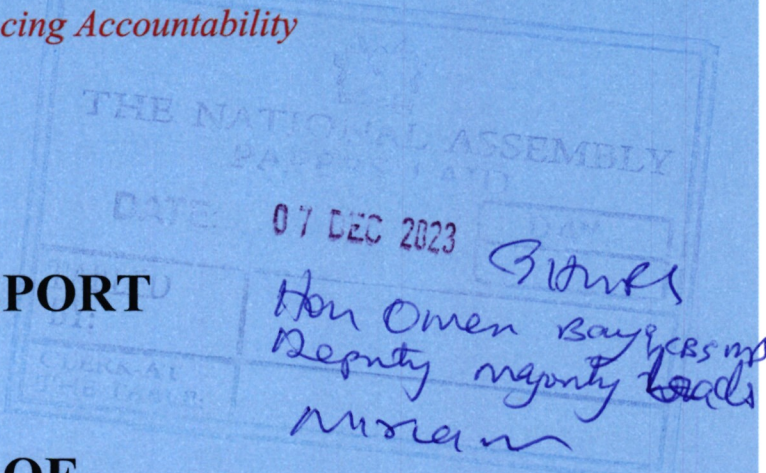 cing Accountability
THE NATIONAL ASSEMBLY
PAPERS LAID
DATE: 07 DEC 2023 DAY
Thurs
PORT
TABLED
BY:
Hon Owen Baya, CBS MP
Deputy majority Leader
CLERK AT
THE TABLE:
Miriam
OF